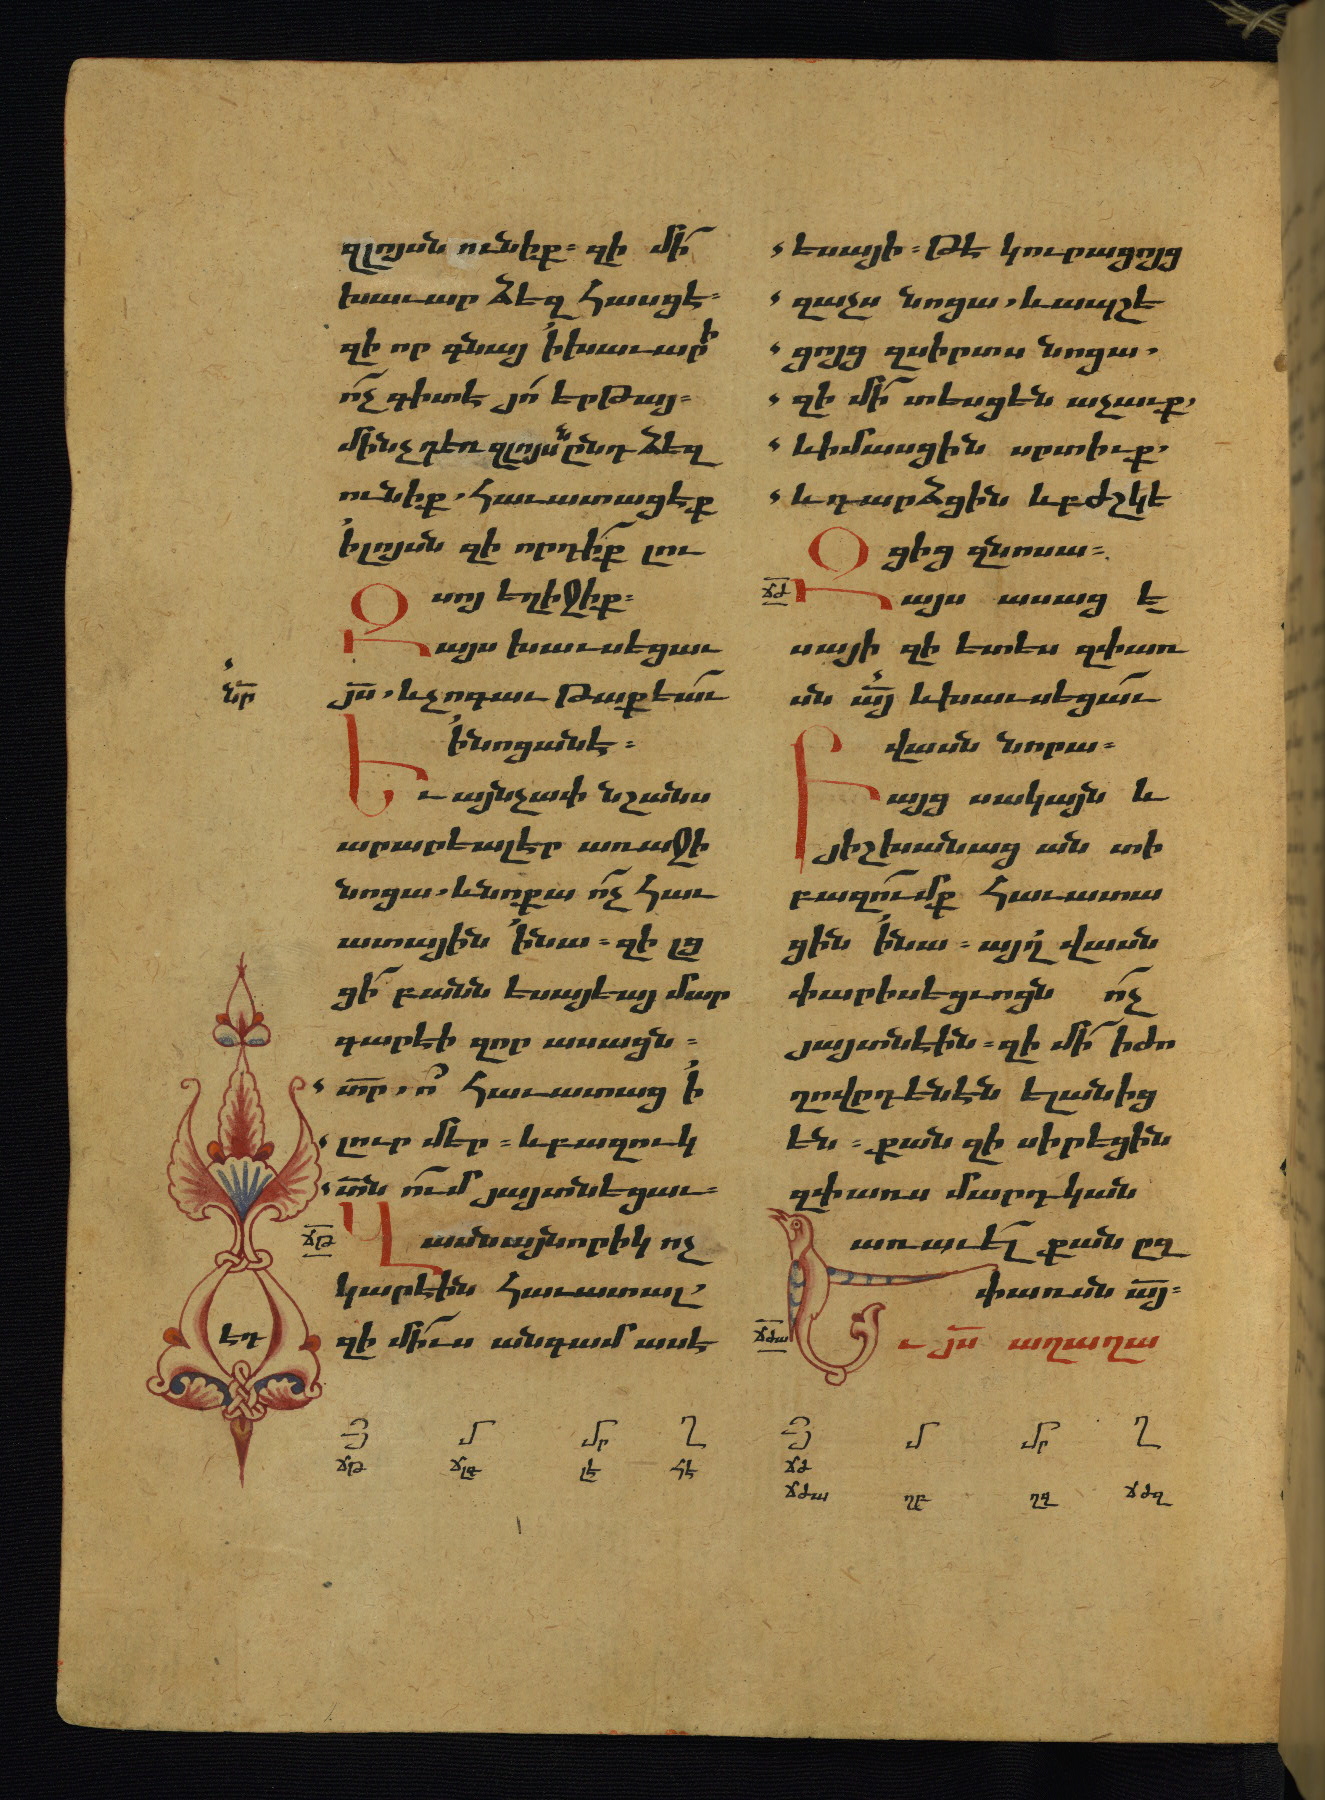 զլոյսն ունիք։ զի մի՛
խաւար ձեզ հասցէ։
զի որ գնայ ՛ի խաւարի
ո՛չ գիտէ յո՛ երթայ։
մինչդեռ զլոյսն ընդ ձեզ
ունիք, հաւատացէք
՛ի լոյսն զի որդի՛ք լու
սոյ եղիջիք։
Զայս խաւսեցաւ
նր
յս, և չոգաւ թաքեա՛ւ
՛ի նոցանէ։
Եւ այնչափ նշանս
արարեալ էր առաջի
նոցա, և նոքա ո՛չ հաւ
ատային ՛ի նա։ զի լց
ցի՛ բանն եսայեայ մար
գարէի զոր ասացն։
տր, ո՞ հաւատաց ՛ի
լուր մեր։ և բազուկ
տն ո՛ւմ յայտնեցաւ։
ճթ
Վասն այնորիկ ոչ
կարէին հաւատալ,
էդ
զի մի՛ւս անգամ ասէ
եսայի։ թէ կուրացոյց
զաչս նոցա, և ապշե
ցոյց զսիրտս նոցա,
զի մի՛ տեսցեն աչաւք,
և իմասցին սրտիւք,
և դարձցին և բժշկե
ցից զնոսա։
ճժ
Զայս ասաց ե
սայի զի ետես զփառ
սն այ և խաւսեցա՛ւ
վասն նորա։
Բայց սակայն և
յիշխանաց ան տի
բազո՛ւմք հաւատա
ցին ՛ի նա։ այղ վասն
փարիսեցւոցն ո՛չ
յայտնէին։ զի մի՛ ի ժո
ղովրդենեն ելանից
են։ քան զի սիրեցին
զփառս մարդկան
առաւե՛լ քան ըզ
փառսն այ։
ճժա
Եւ յս աղաղա
Յ մ մր Ղ
ճթ ճլգ լէ հէ
Յ մ մր Ղ
ճժ
ճժա ղբ ղգ ճժզ